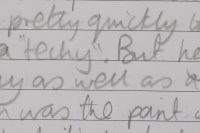 pretty quickly
a "techy". But he
as well as
was the point